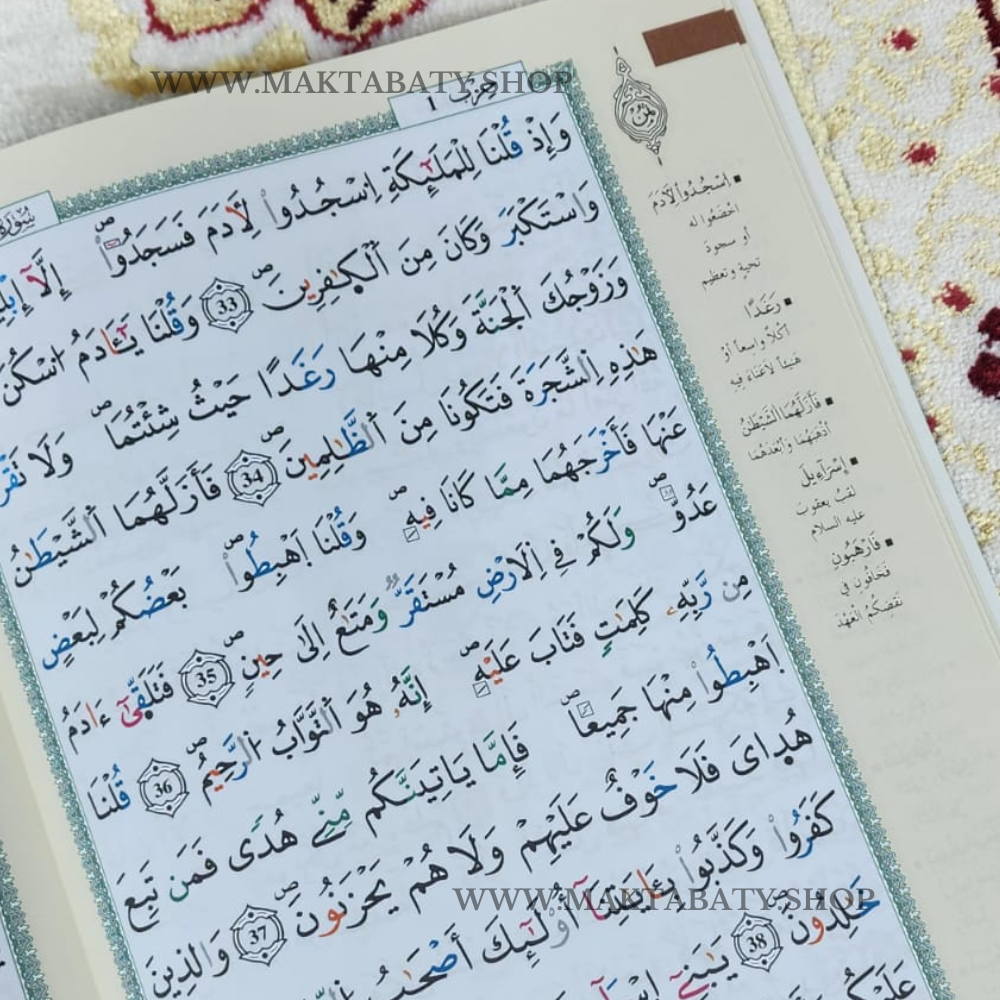 WWW.MAKTABATY.SHOP
حزب 1
سورة
ثمن
وَإِذْ قُلْنَا لِلْمَلَٰٓئِكَةِ اِ۟سْجُدُواْ لِأٓدَمَ فَسَجَدُوٓاْ إِلَّآ
وَاسْتَكْبَرَ وَكَانَ مِنَ اَ۬لْكٰ۪فِر۪ينَ 33 وَقُلْنَا يَٰٓـَٔادَمُ اُ۟سْكُنَ
وَزَوْجُكَ اَ۬لْجَنَّةَ وَكُلَا مِنْهَا رَغَدًا حَيْثُ شِئْتُمَا وَلَا
هَٰذِهِ اِ۬لشَّجَرَةَ فَتَكُونَا مِنَ اَ۬لظَّٰلِمِينَ 34 فَأَزَلَّهُمَا اَ۬لشَّيْطَٰنُ
عَنْهَا فَأَخْرَجَهُمَا مِمَّا كَانَا فِيهِ وَقُلْنَا اَ۪هْبِطُواْ بَعْضُكُمْ لِبَعْضٍ
عَدُوٌّ وَلَكُمْ فِي اِ۬لَارْضِ مُسْتَقَرٌّ وَمَتَٰعٌ اِلَىٰ حِينٍ 35 فَتَلَقَّىٰٓ ءَادَمُ
مِن رَّبِّهِۦ كَلِمَٰتٍ فَتَابَ عَلَيْهِ إِنَّهُۥ هُوَ اَ۬لتَّوَّابُ اُ۬لرَّحِيمُ 36 قُلْنَا
اَ۪هْبِطُواْ مِنْهَا جَمِيعاً فَإِمَّا يَاتِيَنَّكُم مِّنِّے هُدًى فَمَن تَبِعَ
هُدَايَ فَلَا خَوْفٌ عَلَيْهِمْ وَلَا هُمْ يَحْزَنُونَ 37 وَالذِينَ
كَفَرُواْ وَكَذَّبُواْ بِـَٔايَٰتِنَآ أُوْلَٰٓئِكَ أَصْحَٰبُ
خَٰلِدُونَ 38 يَٰبَنِےٓ
عَلَيْكُمْ
اسْجُدُواْ لِأدَمَ
اخضعوا له
أو سجود
تحية وتعظيم
رَغَدًا
أكلا واسعا أو
هنيئا لا عناء فيه
فَأَزَلَّهُمَا الشَّيْطَٰنُ
أذهبهما وأبعدهما
إِسْرَآءِيلَ
لقب يعقوب
عليه السلام
فَارْهَبُونِ
فخافون في
نقضكم العهد
WWW.MAKTABATY.SHOP